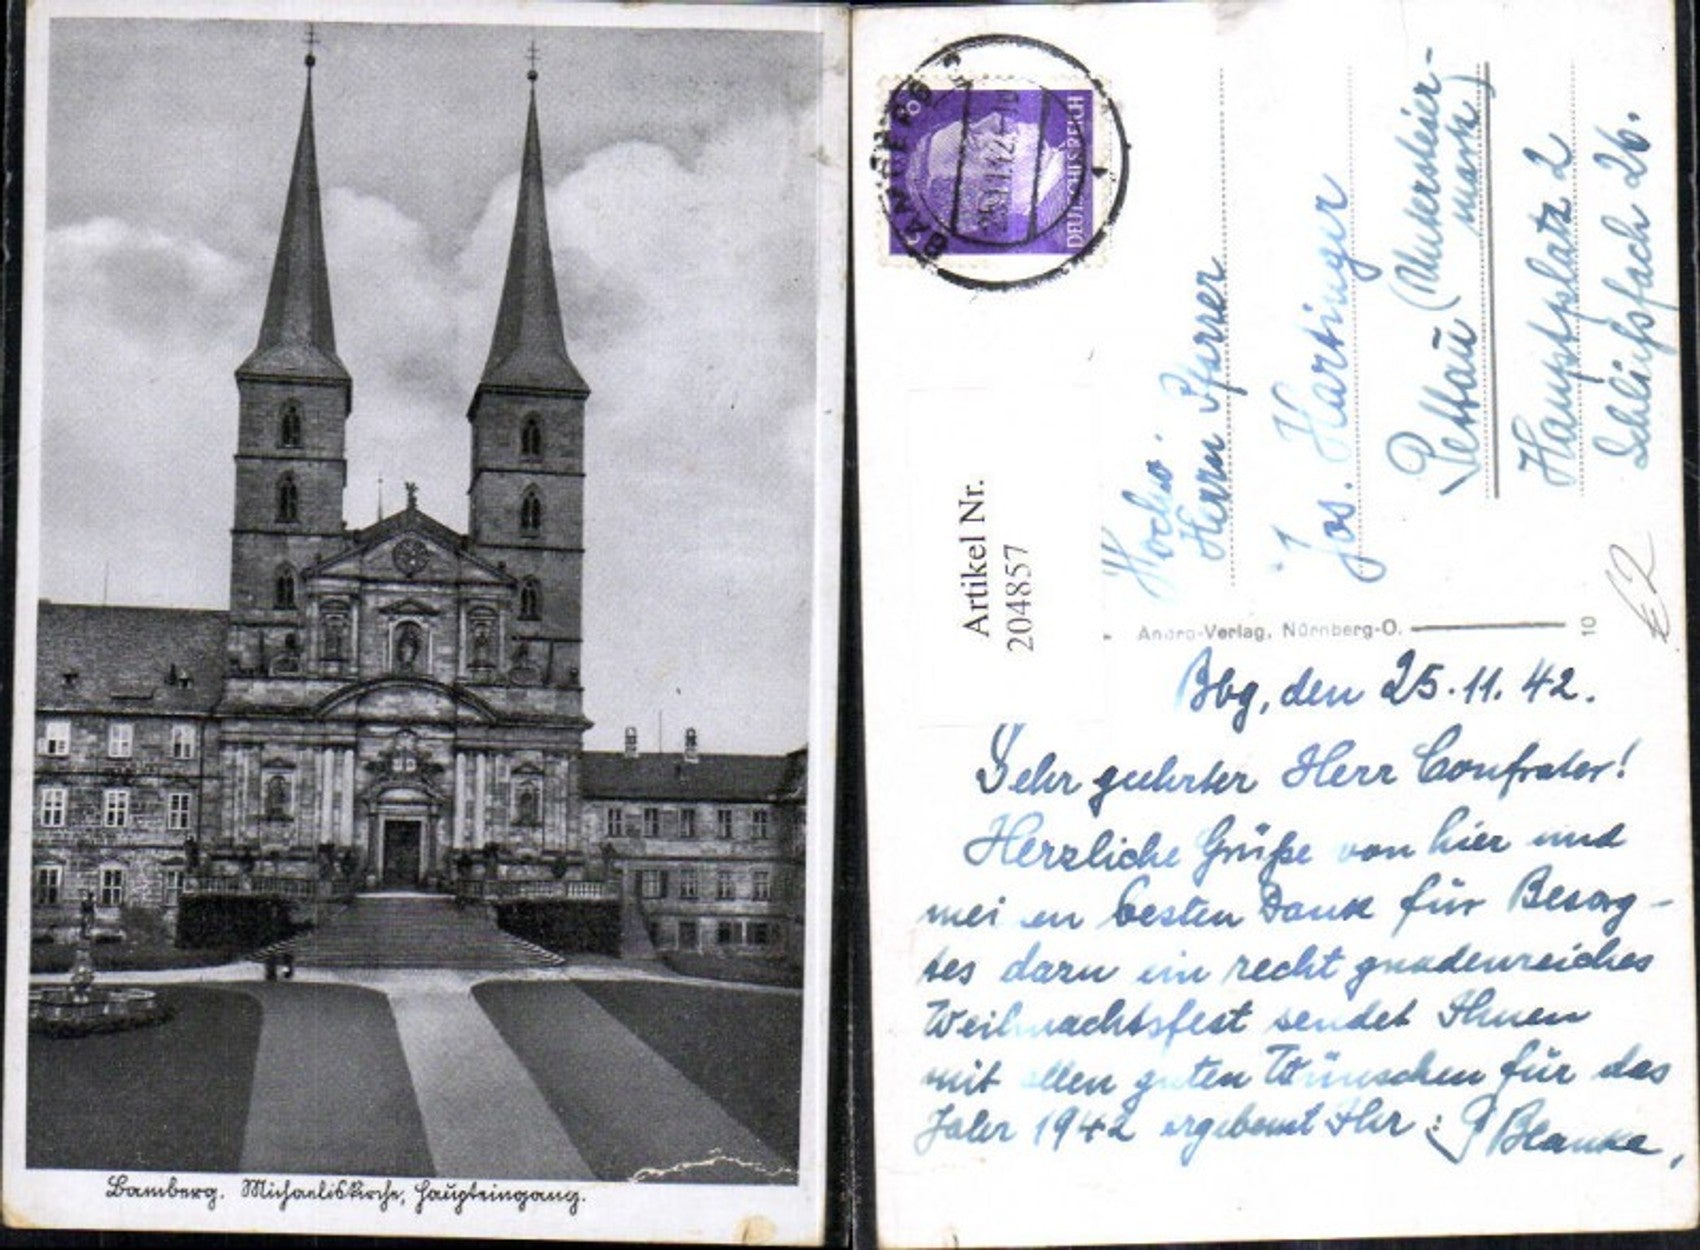 Bamberg. Michaeliskirche, Haupteingang.
BAMBERG 2
25.11.42
DEUTSCHES REICH
6
Artikel Nr.
204857
Hochw.
Herrn Pfarrer
Jos. Hartinger
Pettau (Untersteier-
mark)
Hauptplatz 2
Schließfach 26.
€2
Andro-Verlag, Nürnberg-O.
10
Bbg, den 25.11.42.
Sehr geehrter Herr Confrater!
Herzliche Grüße von hier und
meinen besten Dank für Besorg-
tes dazu ein recht gnadenreiches
Weihnachtsfest sendet Ihnen
mit allen guten Wünschen für das
Jahr 1942 ergebenst Ihr: